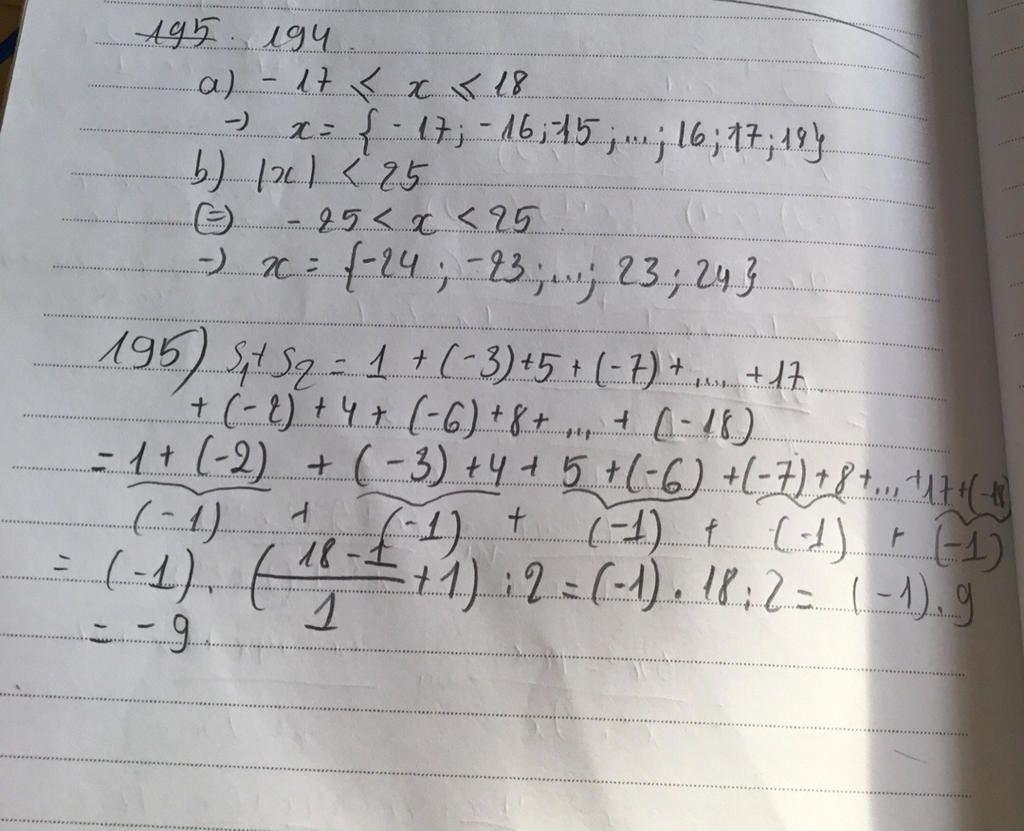 195. 194.
a) -17 ≤ x ≤ 18
→ x = {-17; -16; -15; ...; 16; 17; 18}
b) |x| < 25
(=) -25 < x < 25
→ x = {-24; -23; ...; 23; 24}
195) S1 + S2 = 1 + (-3) + 5 + (-7) + .... + 17
+ (-2) + 4 + (-6) + 8 + ... + (-18)
= 1 + (-2) + (-3) + 4 + 5 + (-6) + (-7) + 8 + ... + 17 + (-18)
(-1) + (-1) + (-1) + (-1) + (-1)
= (-1). (18-1/1 + 1) : 2 = (-1). 18 : 2 = (-1). 9
= -9.